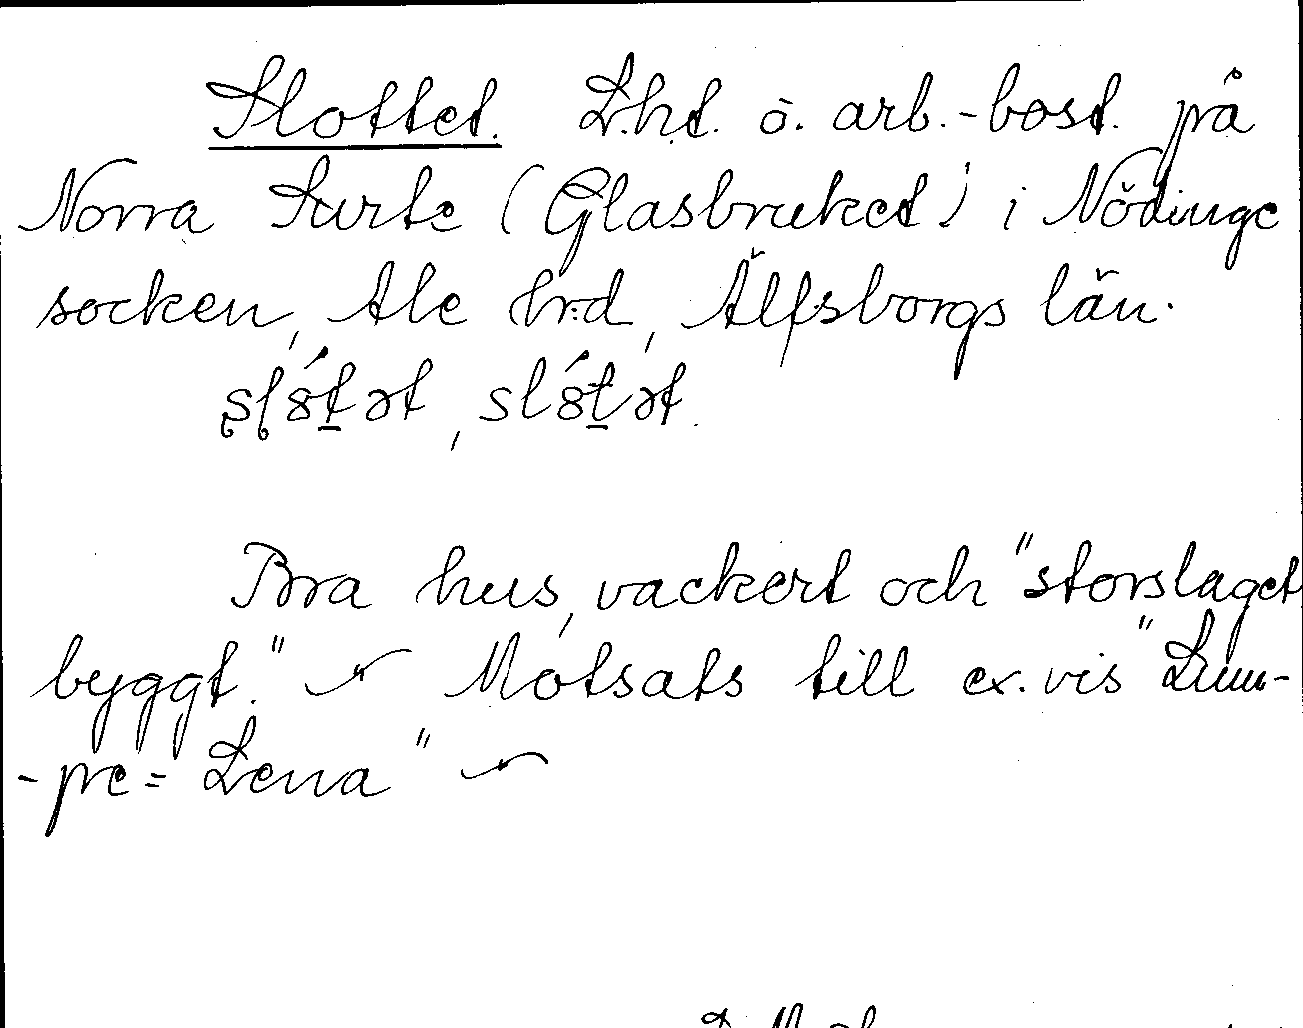 Slottet. L.ht. o. arb.-bost. på
Norra Surte (Glasbruket) i Nödinge
socken, Ale h:d, Älfsborgs län.
Bra hus, vackert och "storslaget
byggt." Motsats till ex.vis "Lum-
-pe=Lena"